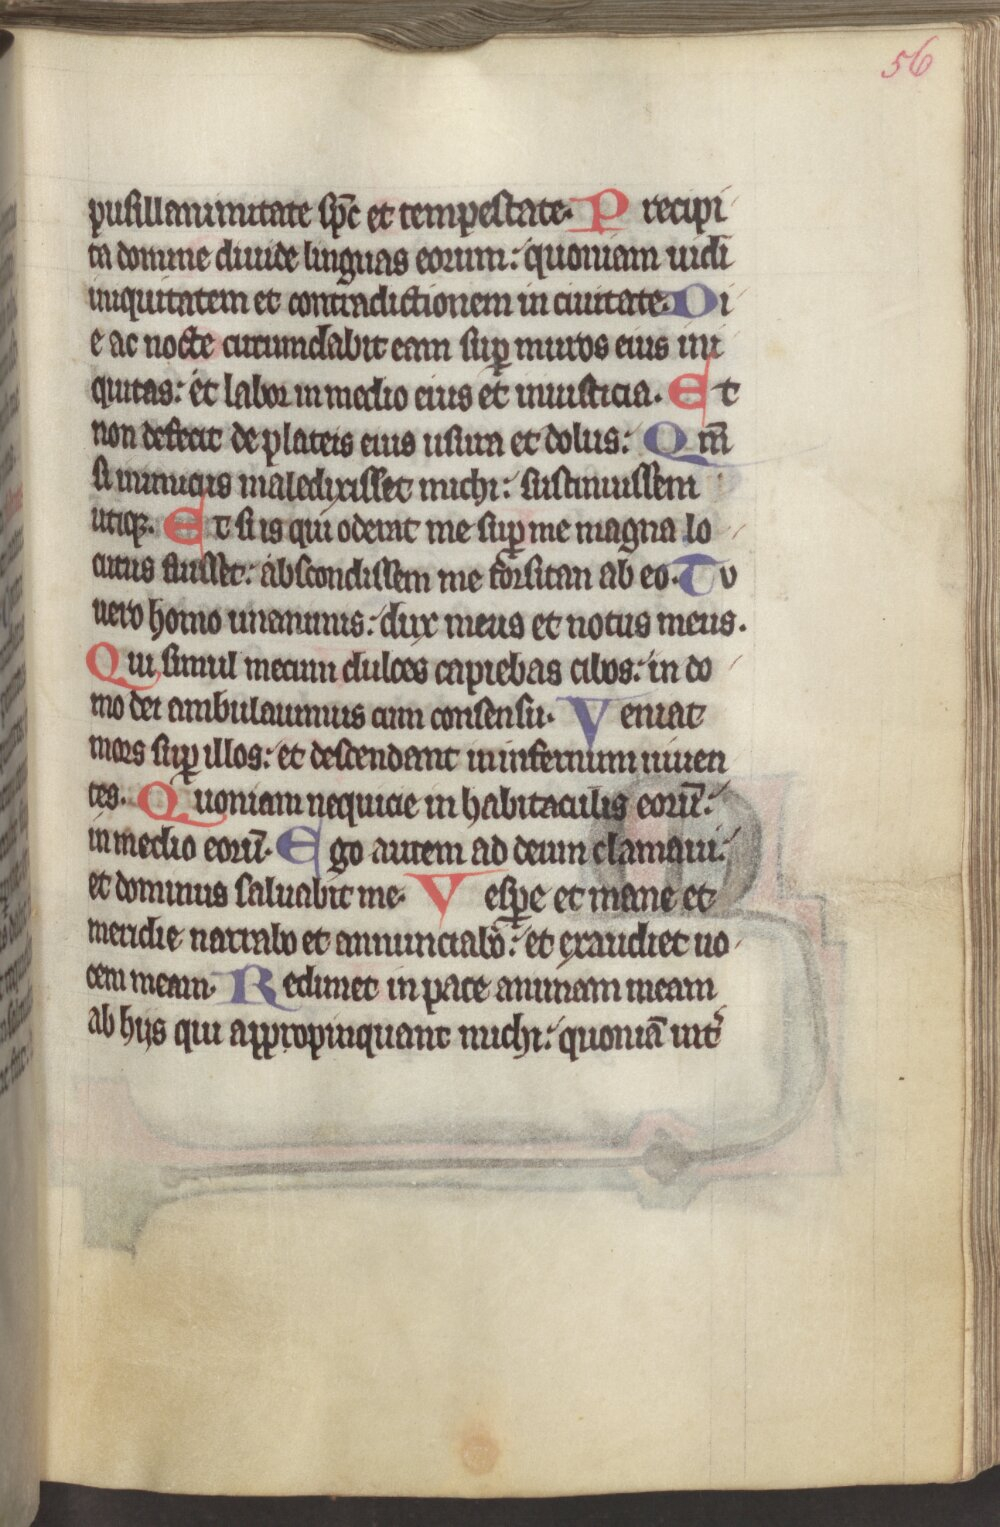 56
pusillanimitate sp̄c et tempestate. Precipi
ta domine diuide linguas eorum: quoniam uidi
iniquitatem et contradictionem in ciuitate. Di
e ac nocte circumdabit eam sup̱ muros eius ini
quitas: et labor in medio eius et iniusticia. Et
non defecit de plateis eius usura et dolus: Qm̄
si inimicus maledixisset michi: sustinuissem
utiqꝫ. Et si is qui oderat me sup̱ me magna lo
cutus fuisset: abscondissem me forsitan ab eo. Tu
uero homo unanimis: dux meus et notus meus.
Qui simul mecum dulces capiebas cibos: in do
mo dei ambulauimus cum consensu. Veniat
mors sup̱ illos: et descendant in infernum uiuen
tes. Quoniam nequicie in habitaculis eorū:
in medio eorū. Ego autem ad deum clamaui:
et dominus saluabit me. Vesp̱e et mane et
meridie narrabo et annunciabo: et exaudiet uo
cem meam. Redimet in pace animam meam
ab hijs qui appropinquant michi: quoniā int̓